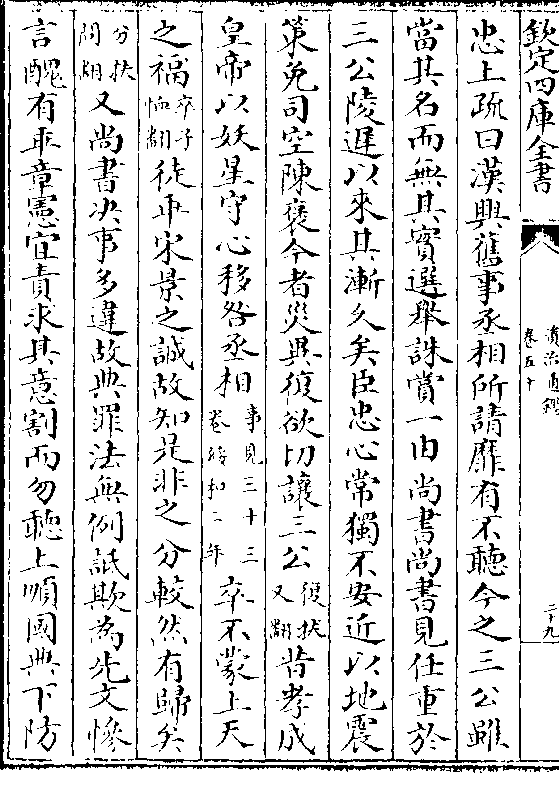 欽定四庫全書
資治通鑑
卷五十
二十九
忠上疏曰漢興舊事丞相所請靡有不聽今之三公雖
當其名而無其實選舉誅賞一由尚書尚書見任重於
三公陵遲以來其漸久矣臣忠心常獨不安近以地震
策免司空陳褒今者災異復欲切讓三公復扶又翻昔孝成
皇帝以妖星守心移咎丞相事見三十三卷綏和二年卒不蒙上天
之福卒子恤翻徒乖宋景之誠故知是非之分較然有歸矣
分扶問翻又尚書決事多違故典罪法無例詆欺為先文慘
言醜有乖章憲宜責求其意割而勿聽上順國典下防